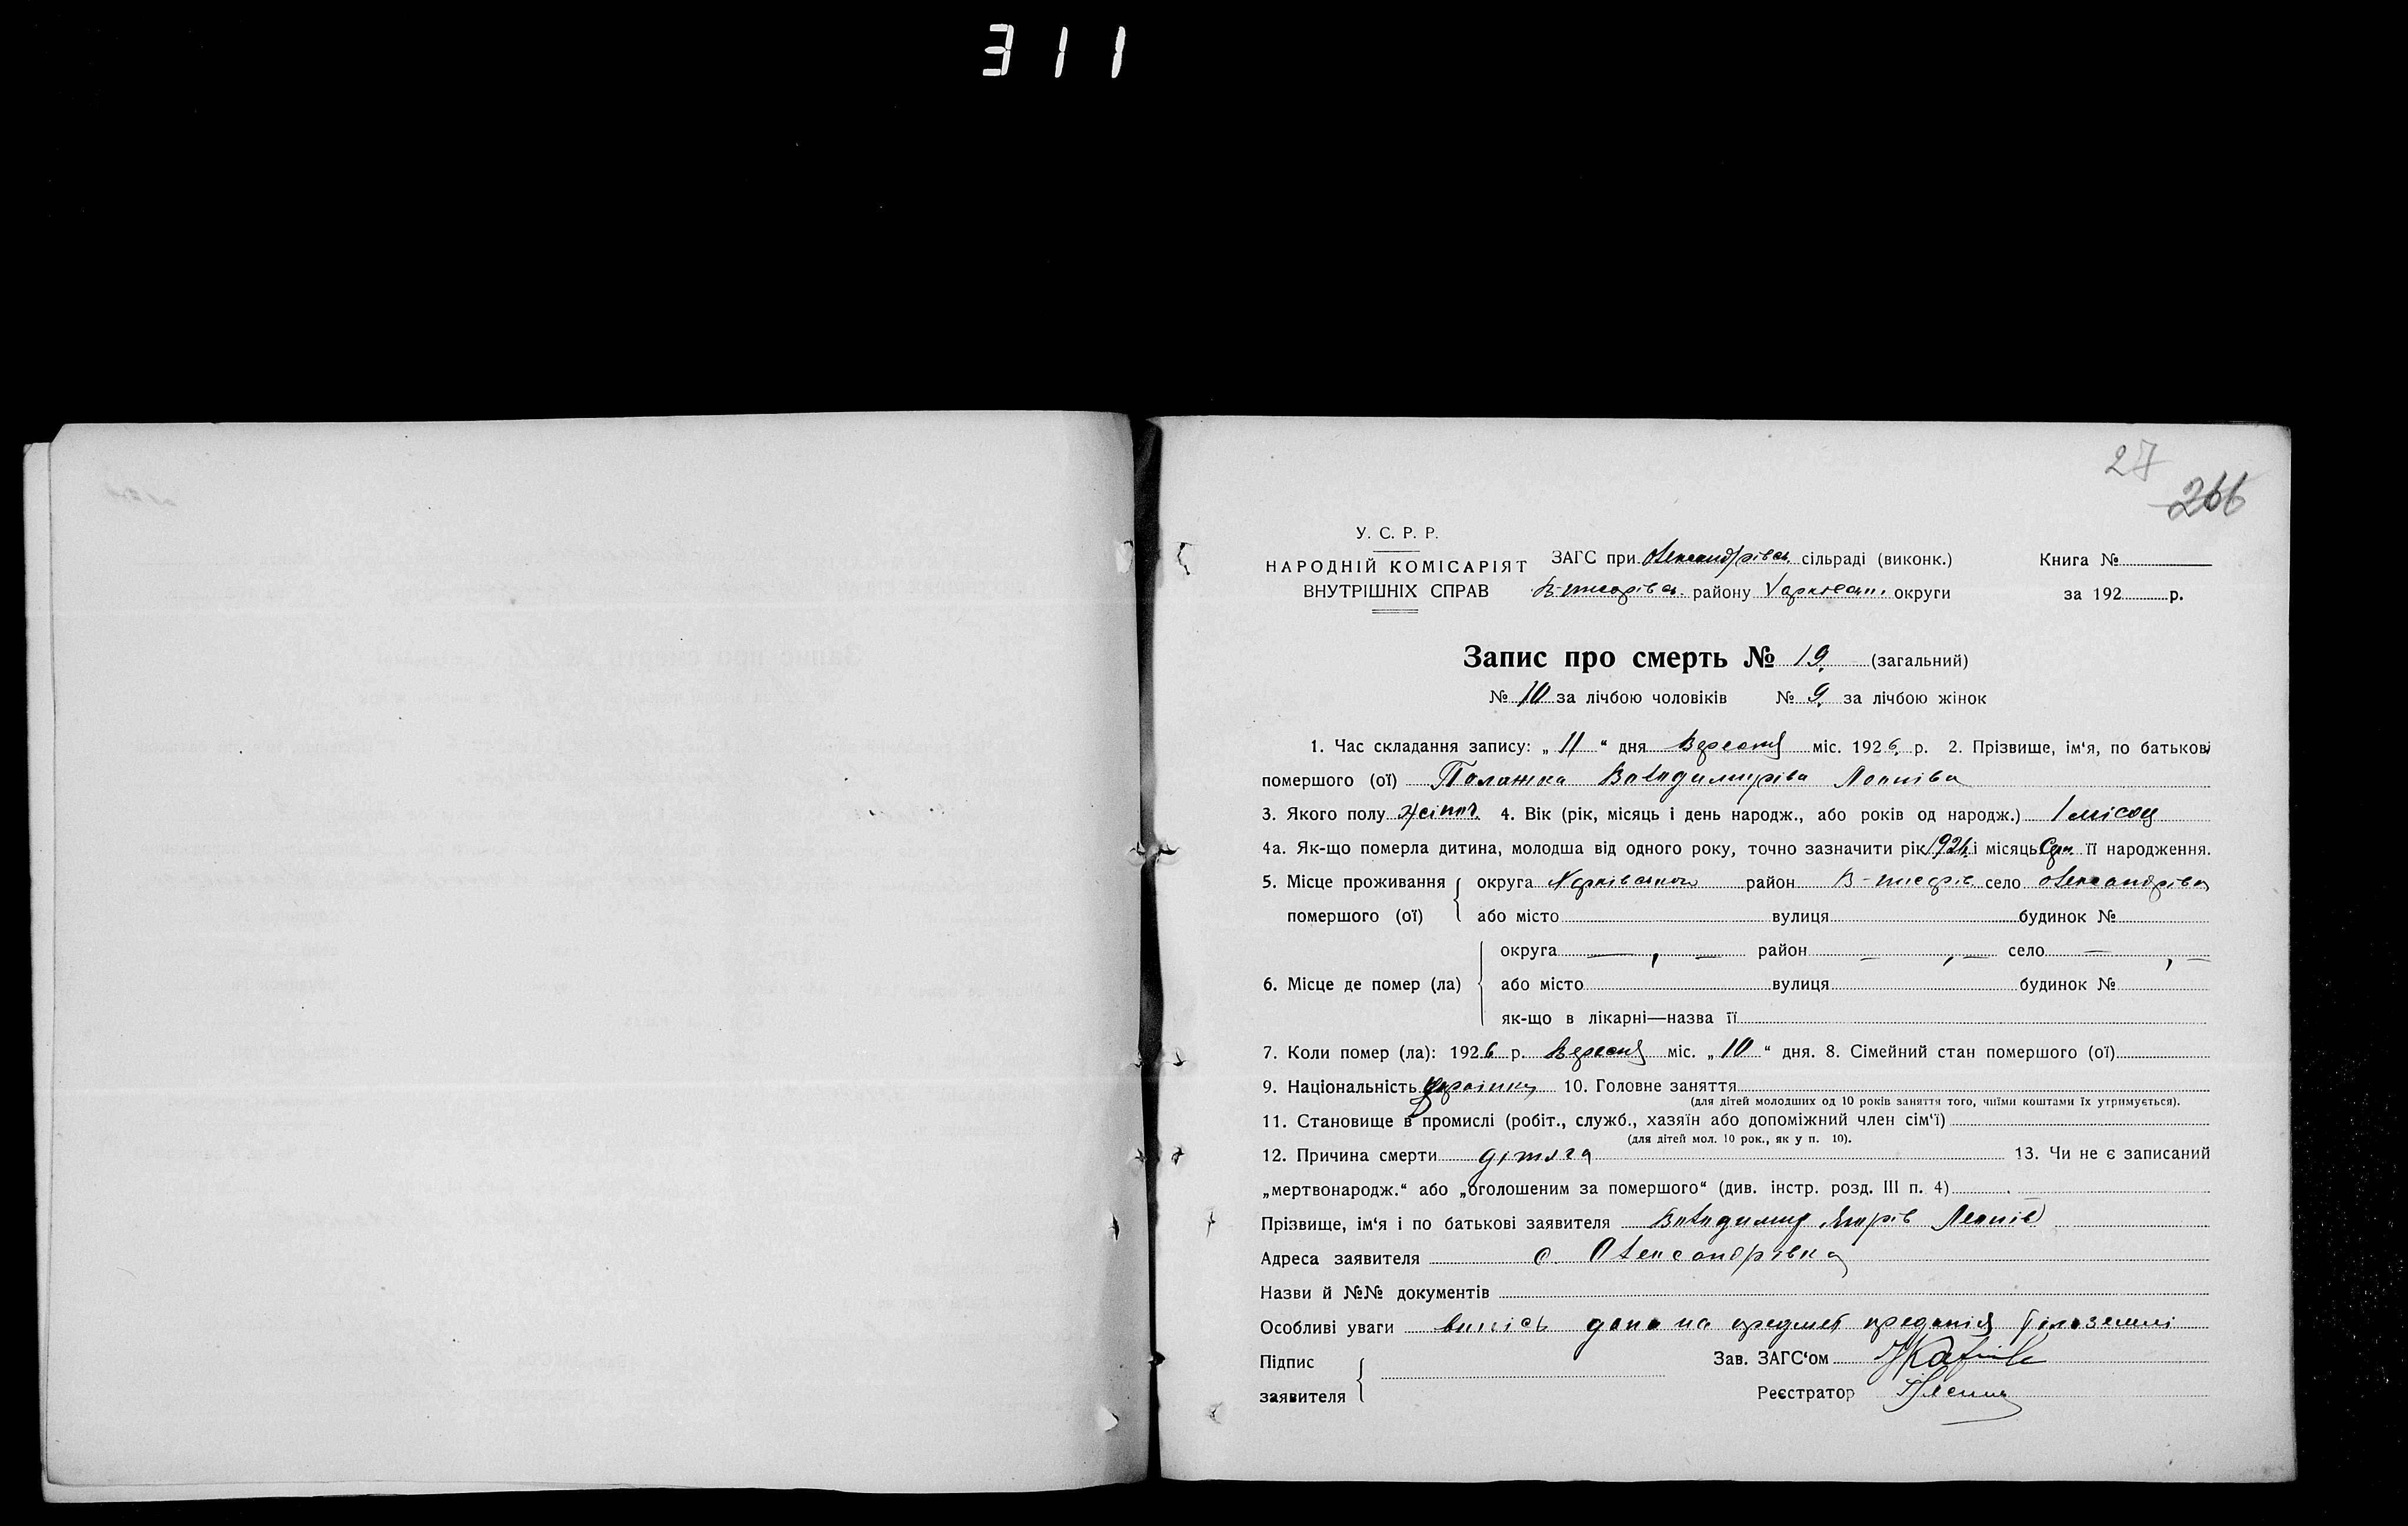 311
27
266
У. С. Р. Р.
НАРОДНІЙ КОМІСАРІЯТ
ВНУТРІШНІХ СПРАВ
ЗАГС при Олександрівсь. сільраді (виконк.)
В-писарівсь. району Харківськ. округи
Книга №
за 192 р.
Запис про смерть № 19. (загальний)
№ 10 за лічбою чоловіків № 9. за лічбою жінок
1. Час складання запису: „ 11 “ дня Вересня міс. 1926. р. 2. Прізвище, ім‘я, по батькові
помершого (ої) Палажка Володимиріва
3. Якого полу жіноч. 4. Вік (рік, місяць і день народж., або років од народж.) 1 місяц
4а. Як-що померла дитина, молодша від одного року, точно зазначити рік 1926 і місяць Серп. її народження.
5. Місце проживання помершого (ої)
округа Харківської район В-писарів село Олександрівка
або місто вулиця будинок №
6. Місце де помер (ла)
округа — „ — район — „ — село — „ —
або місто вулиця будинок №
як-що в лікарні—назва її
7. Коли помер (ла): 1926 р. Вересня міс. „ 10 “ дня. 8. Сімейний стан помершого (ої)
9. Національність Українка 10. Головне заняття
(для дітей молодших од 10 років заняття того, чиїми коштами їх утримується).
11. Становище в промислі (робіт., служб., хазяїн або допоміжний член сім‘ї)
(для дітей мол. 10 рок., як у п. 10).
12. Причина смерти 13. Чи не є записаний
„мертвонародж.“ або „оголошеним за помершого“ (див. інстр. розд. III п. 4)
Прізвище, ім‘я і по батькові заявителя Володимир
Адреса заявителя с. Олександрівка
Назви й №№ документів
Особливі уваги випісь дана на предмет преданія тіла землі
Підпис заявителя
Зав. ЗАГС‘ом
Реєстратор